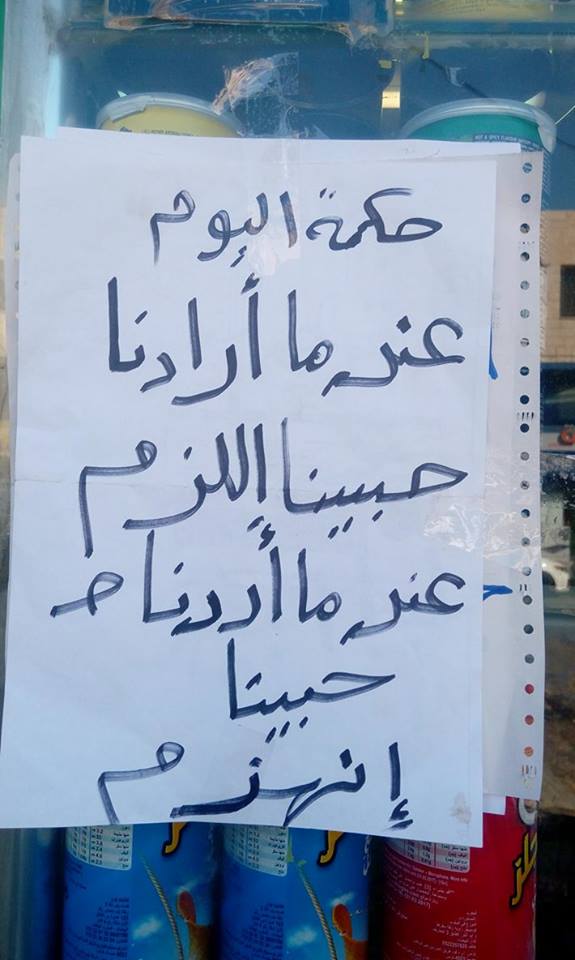 حكمة اليوم
عندما أرادنا
حبيبنا إلزم
عندما أردناه
حبيبنا
إنهزم